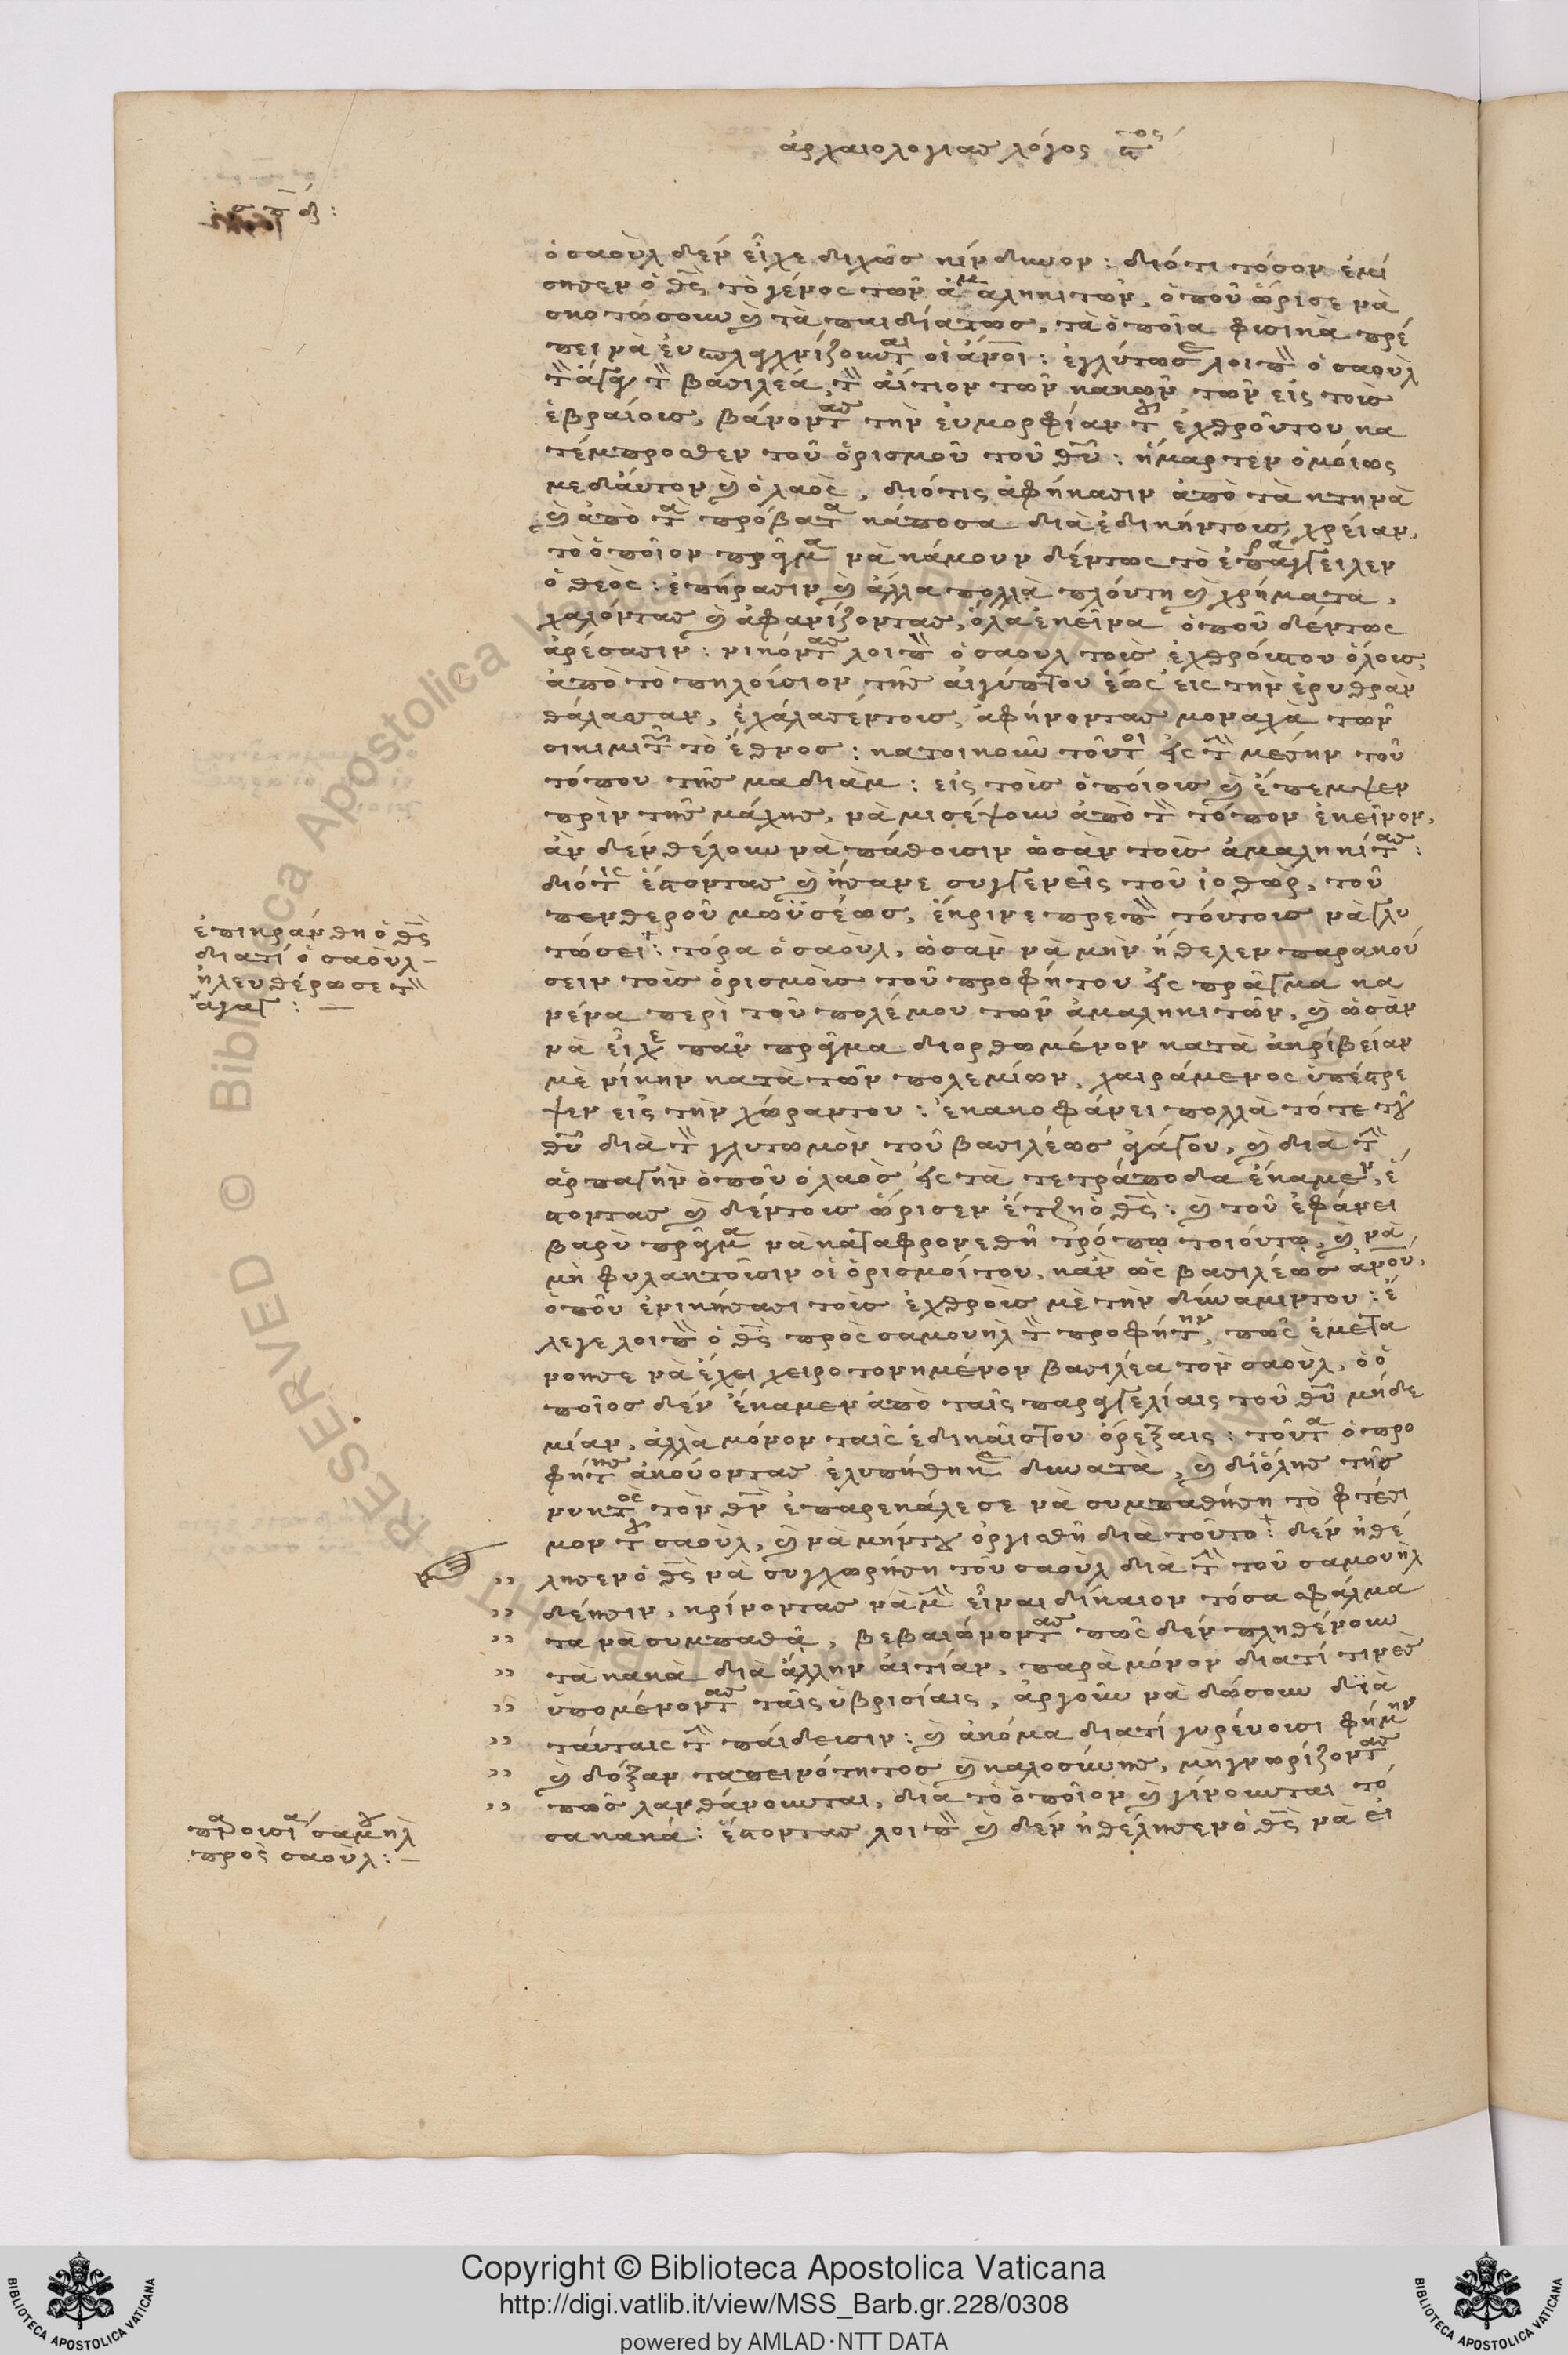 ἀρχαιολογίας λόγος ϛος
ὁ σαοὺλ δὲν εἶχε διχῶς κίνδυνον: διότι τόσον ἐμί
σησεν ὁ θς̅ τὸ γένος τῶν ἀμαληκιτῶν, ὁποῦ ὥρισε νὰ
σκοτώσουν καὶ τὰ παιδία τως, τὰ ὁποῖα φισικὰ πρέ
πει νὰ οἱ ἀνοι: ἐγλύτωσε λοιπ ὁ σαοὺλ
τὸν βασιλέα, τὸν αἴτιον τῶν κακῶν τῶν εἰς τοὺς
ἑβραίους, βάνοντας τὴν εὐμορφίαν τοῦ ἐχθροῦ του κα
τέμπροσθεν τοῦ ὁρισμοῦ τοῦ θῦ: ἥμαρτεν ὁμοίως
μεδἀυτον καὶ ὁ λαὸς, διότις ἀφήκασιν ἀπὸ τὰ κτηνὰ
καὶ ἀπὸ τὰ πρόβατα κάποσα διὰ ἐδικήντους χρείαν,
τὸ ὁποῖον πρᾶγμα νὰ κάμουν δέντως τὸ ἐπαράγγειλεν
ὁ θεὸς: ἐπήρασιν καὶ ἄλλα πολλὰ πλούτη καὶ χρήματα,
χαλόντας καὶ ἀφανίζοντας, ὅλα ἐκεῖνα ὁποῦ δέντως
ἀρέσασιν: νικόντας λοιπ ὁ σαουλ τοὺς ἐχθρούς του ὅλους,
ἀπὸ τὸ πηλούσιον τῆς αἰγύπτου ἑώς εἰς τὴν ἐρυθρὰν
θάλασσαν, ἐχάλασέντους, ἀφήνοντας μοναχὰ τῶν
σικιμιτῶν τὸ ἔθνος: κατοικοῦν τοῦτοι εἰς τὴν μέσην τοῦ
τόπου τῆς μαδιάμ: εἰς τοὺς ὁποίους καὶ ἔπεμψεν
πρὶν τῆς μάχης, νὰ μισέψουν ἀπὸ τὸν τόπον ἐκεῖνον,
ἂν δὲν θέλουν νὰ πάθουσιν ὡσὰν τοὺς ἀμαληκίτας:
διότις ἔστοντας καὶ ἤσανε συγγενεῖς τοῦ ἰοθὼρ, τοῦ
πενθεροῦ μωϋσέως, ἔκρινε πρεπὸν τούτους νὰ γλυ
τώσει: τόρα ὁ σαοὺλ, ὡσὰν νὰ μὴν ἤθελεν παρακού
σειν τοὺς ὁρισμοὺς τοῦ προφήτου εἰς πρᾶγμα κα
νένα περὶ τοῦ πολέμου τῶν ἀμαληκιτῶν, καὶ ὡσὰν
νὰ εἶχε πᾶν πρᾶγμα διορθωμένον κατὰ ἀκρίβείαν
μὲ νίκην κατὰ τῶν πολεμίων, χαιράμενος ὑπέστρε
ψεν εἰς τὴν χώραν του: ἐκακοφάνει πολλὰ τότε τοῦ
θῦ διὰ τὸν γλυτωμὸν τοῦ βασιλέως ἀγάγου, καὶ διὰ τὴν
ἁρπαγὴν ὁποῦ ὁ λαὸς εἰς τὰ τετράποδα ἔκαμεν, ἔ
στοντας καὶ δέντους ὥρισεν ἔτζη ὁ θς̅: καὶ τοῦ ἐφάνει
βαρὺ πρᾶγμα νὰ καταφρονεθῆ τρόπω τοιούτω, καὶ νὰ
μὴ φυλακτοῦσιν οἱ ὁρισμοί του, κἂν ὡς βασιλέως ἀνου,
ὁποῦ ἐνικήσασι τοὺς ἐχθροὺς μὲ τὴν δύναμιντου: ἔ
λεγε λοιπ ὁ θς̅ πρὸς σαμουὴλ τὸν προφήτην, πῶς ἐμετα
νοησε νὰ ἔχει χειροτονημένον βασιλέα τὸν σαοὺλ, ὁ ὁ
ποῖος δὲν ἔκαμεν ἀπὸ ταῖς παραγγελίαις τοῦ θῦ μήδε
μίαν, ἀλλὰ μόνον ταῖς ἐδικαῖστου ὄρεξαις: τοῦτα ὁ προ
φήτης ἀκούοντας ἐλυπήθηκε δυνατὰ, καὶ διόλης τῆς
νυκτὸς τὸν θν̅ ἐπαρεκάλεσε νὰ συμπαθήση τὸ φτέσι
μον τοῦ σαοὺλ, καὶ νὰ μήντου ὀργισθῆ διὰ τοῦτο: δὲν ἠθέ
λησεν ὁ θς̅ νὰ συγχωρήση τοῦ σαοὺλ διὰ τὴν τοῦ σαμουὴλ
δέησιν, κρίνοντας νὰ μὴν εἶναι δίκαιον τόσα σφάλμα
τα νὰ συμπαθᾶ, βεβαιώνοντας πῶς δὲν πληθένουν
τὰ κακὰ διὰ ἄλλην αἰτίαν, παρὰ μόνον διατί τινὲς
ὑπομένοντας ταῖς ὑβρισίαις, ἀργοῦν νὰ δώσουν διὰ
ταύταις τὴν παίδευσιν: καὶ ἀκόμα διατί γυρεύουσι φήμην
καὶ δόξαν ταπεινότητος καὶ καλοσύνης, μὴ γνωρίζοντας
πῶς λανθάνουνται, διὰ τὸ ὁποῖον καὶ γίνουνται τό
σα κακά: ἔστοντας λοιπ καὶ δὲν ἠθέλησεν ὁ θς̅ νὰ εἰ
ἐπικράνθη ὁ θς̅
διατί ὁ σαοὺλ
ἠλευθέρωσε τὸν
ἄγαγ:
παρουσία σαμουὴλ
πρὸς σαοὺλ:
Copyright © Biblioteca Apostolica Vaticana
http://digi.vatlib.it/view/MSS_Barb.gr.228/0308
powered by AMLAD·NTT DATA
BIBLIOTECA APOSTOLICA VATICANA
BIBLIOTECA APOSTOLICA VATICANA